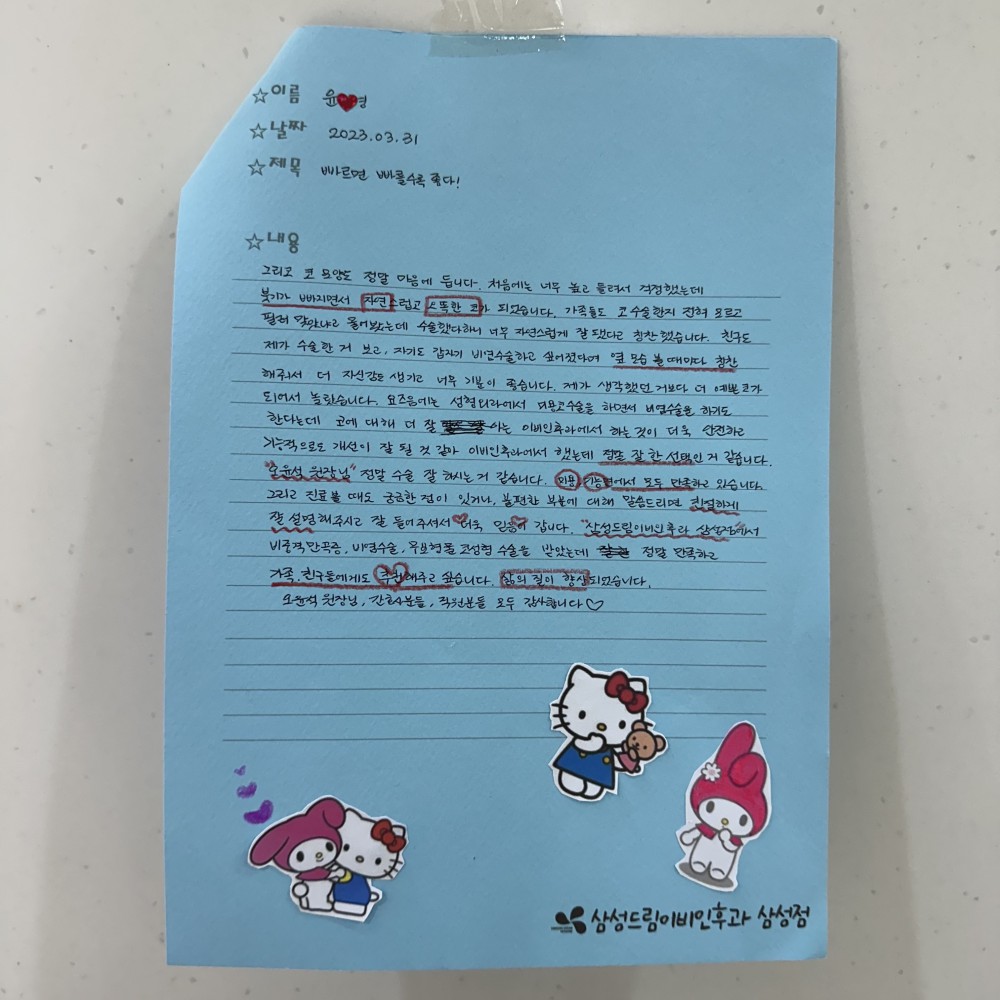 ☆이름 윤♥영
☆날짜 2023.03.31
☆제목 빠르면 빠를수록 좋다!
☆내용
그리고 코 모양도 정말 마음에 듭니다. 처음에는 너무 높고 들려서 걱정했는데
붓기가 빠지면서 자연스럽고 오똑한 코가 되었습니다. 가족들도 코수술한지 전혀 모르고
필러 맞았냐고 물어봤는데 수술했다하니 너무 자연스럽게 잘 됐다고 칭찬했습니다. 친구도
제가 수술한 거 보고, 자기도 갑자기 비염수술하고 싶어졌다며 옆 모습 볼 때마다 칭찬
해줘서 더 자신감도 생기고 너무 기분이 좋습니다. 제가 생각했던 거보다 더 예쁜 코가
되어서 놀랐습니다. 요즈음에는 성형외과에서 미용코수술을 하면서 비염수술을 하기도
한다는데 코에 대해 더 잘 아는 이비인후과에서 하는것이 더욱 안전하고
기능적으로도 개선이 잘 될 것 같아 이비인후과에서 했는데 정말 잘 한 선택인 거 같습니다.
"오윤석 원장님" 정말 수술 잘 하시는 거 같습니다. 미용, 기능면에서 모두 만족하고 있습니다.
그리고 진료볼 때도 궁금한 점이 있거나, 불편한 부분에 대해 말씀드리면 친절하게
잘 설명해주시고 잘 들어주셔서 더욱 믿음이 갑니다. "삼성드림이비인후과 삼성점"에서
비중격만곡증, 비염수술, 무보형물 코성형 수술을 받았는데 정말 만족하고
가족, 친구들에게도 추천해주고 싶습니다. 삶의 질이 향상되었습니다.
오윤석 원장님, 간호사분들, 직원분들 모두 감사합니다♡
삼성드림이비인후과 삼성점